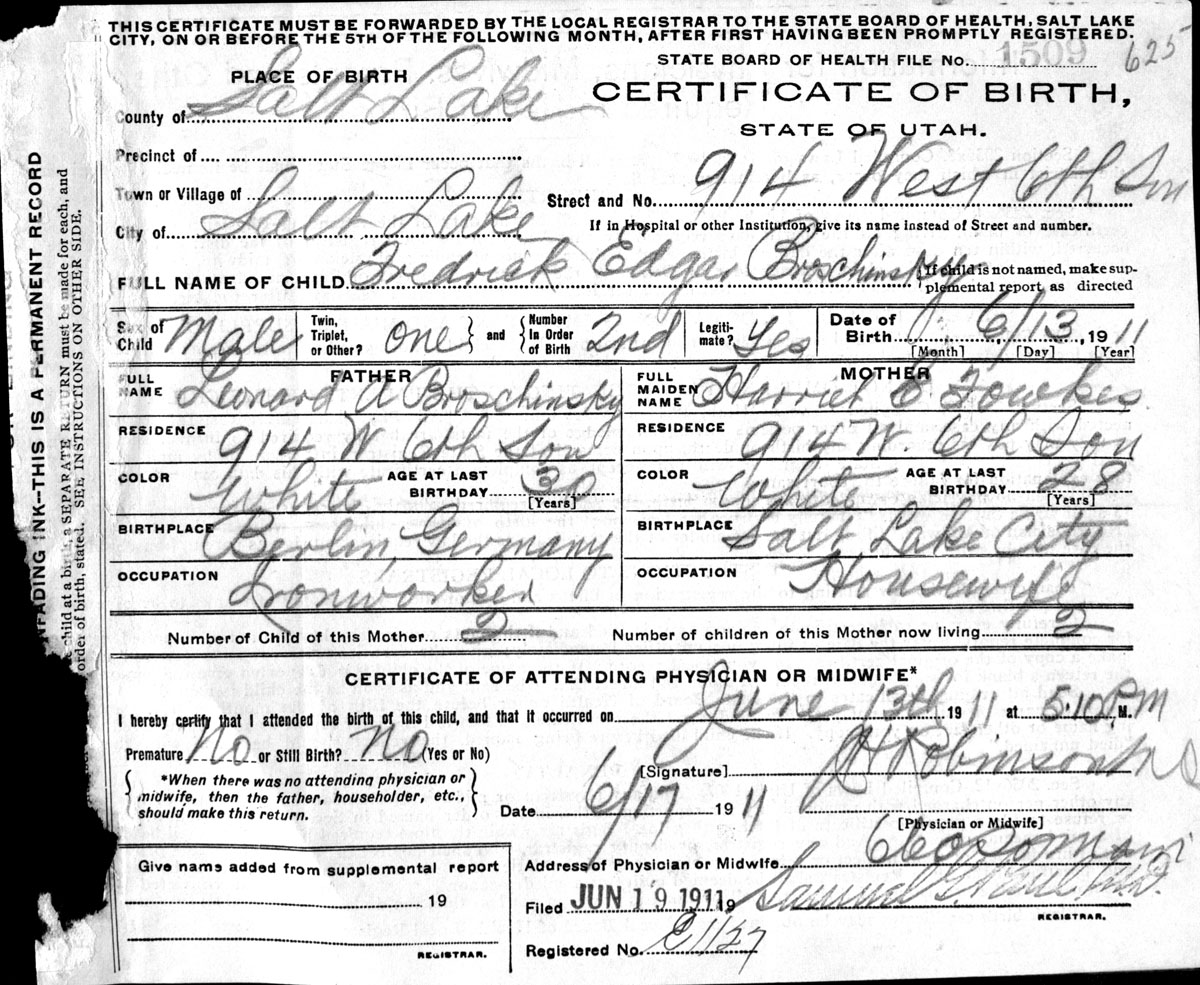 THIS CERTIFICATE MUST BE FORWARDED BY THE LOCAL REGISTRAR TO THE STATE BOARD OF HEALTH, SALT LAKE
CITY, ON OR BEFORE THE 5TH OF THE FOLLOWING MONTH, AFTER FIRST HAVING BEEN PROMPTLY REGISTERED.
STATE BOARD OF HEALTH FILE No. 1509 625
PLACE OF BIRTH
CERTIFICATE OF BIRTH,
County of Salt Lake
STATE OF UTAH.
Precinct of
Town or Village of
Street and No. 914 West 6th Son
City of Salt Lake
If in Hospital or other Institution, give its name instead of Street and number.
FULL NAME OF CHILD Fredrick Edgar Broschinsky
If child is not named, make sup-
plemental report as directed
Sex of Child Male Twin, Triplet, or Other? One and Number In Order of Birth 2nd Legiti-mate? Yes Date of Birth 6/13, 1911
[Month] [Day] [Year]
FATHER
MOTHER
FULL NAME Leonard A Broschinsky
FULL MAIDEN NAME Harriet E Fowkes
RESIDENCE 914 W 6th Son
RESIDENCE 914 W. 6th Son
COLOR White AGE AT LAST BIRTHDAY 30 [Years]
COLOR White AGE AT LAST BIRTHDAY 28 [Years]
BIRTHPLACE Berlin, Germany
BIRTHPLACE Salt Lake City
OCCUPATION Ironworker
OCCUPATION Housewife
Number of Child of this Mother 2 Number of children of this Mother now living 2
CERTIFICATE OF ATTENDING PHYSICIAN OR MIDWIFE*
I hereby certify that I attended the birth of this child, and that it occurred on June 13th 1911 at 5:10 P.M M.
Premature No or Still Birth? No (Yes or No)
*When there was no attending physician or
midwife, then the father, householder, etc.,
should make this return.
[Signature] Robinson
Date 6/17 1911
[Physician or Midwife]
Give name added from supplemental report
19
REGISTRAR.
Address of Physician or Midwife
Filed JUN 19 1911 19 Samuel G. Paul M.D.
REGISTRAR.
Registered No. C1127
NFADING INK--THIS IS A PERMANENT RECORD
child at a birth, a SEPARATE RETURN must be made for each, and
order of birth, stated. SEE INSTRUCTIONS ON OTHER SIDE.